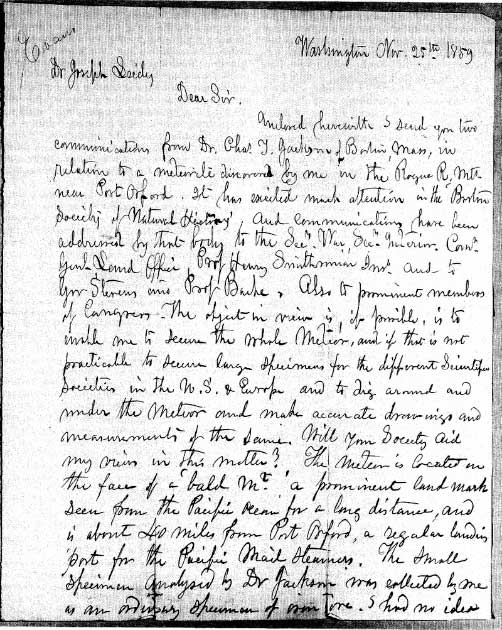 Evans
Washington Nov. 25th 1859
Dr Joseph Leidy
Dear Sir.
Enclosed herewith I send you two
communications from Dr. Chas T. Jackson of Boston, Mass, in
relation to a meteorite discovered by me in the Rogue R. Mts
near Port Orford. It has excited much attention in the Boston
Society of Natural History, And communications have been
addressed by that body to the Secy War, Secy Interior. Comr
Genl Land Office Prof Henry Smithsonian Inst. and to
Gov Stevens and Prof Bache, Also to prominent members
of Congress. The object in view is, if possible, is to
enable me to secure the whole Meteor, and if this is not
practicable to secure large specimens for the different Scientific
Societies in the U.S. & Europe and to dig around and
under the Meteor and make accurate drawings and
measurements of the same. Will your Society aid
my views in this matter? The Meteor is located on
the face of a "bald Mt." a prominent land mark
seen from the Pacific Ocean for a long distance, and
is about 40 miles from Port Orford, a regular landing
port for the Pacific Mail Steamers. The small
Specimen analysed by Dr Jackson was collected by me
as an ordinary specimen of iron ore. I had no idea